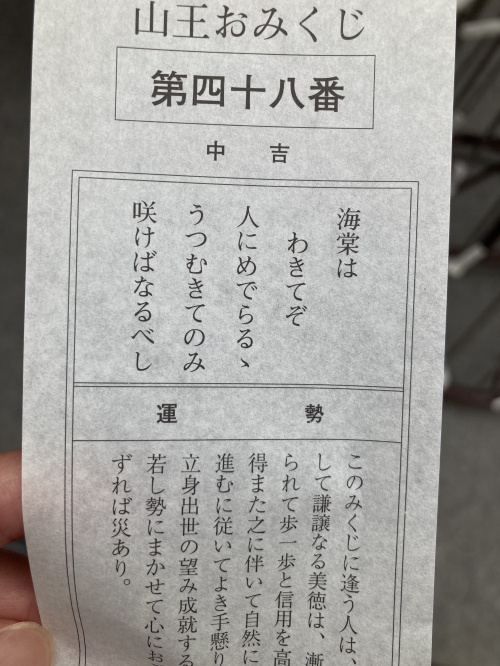 山王おみくじ
第四十八番
中吉
海棠は
わきてぞ
人にめでらるゝ
うつむきてのみ
咲けばなるべし
運勢
このみくじに逢う人は、
して謙譲なる美徳は、漸
られて歩一歩と信用を高
得また之に伴いて自然に
進むに従いてよき手懸り
立身出世の望み成就する
若し勢にまかせて心にお
ずれば災あり。